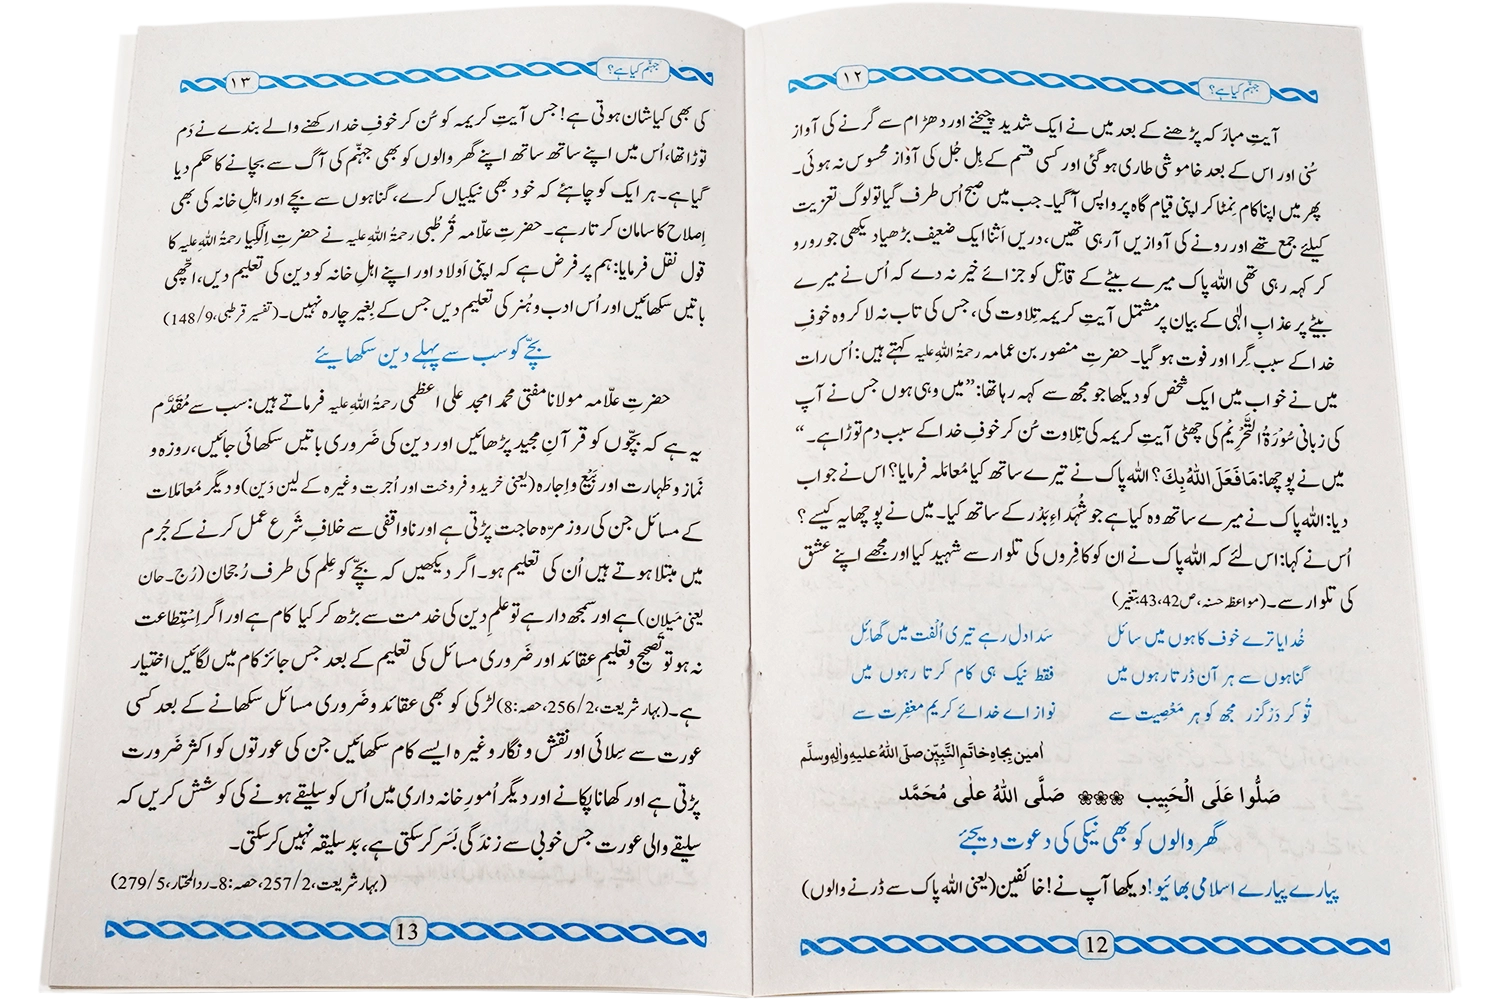 جہنّم کیا ہے؟
١٢
آیتِ مبارَکہ پڑھنے کے بعد میں نے ایک شدید چیخنے اور دھڑام سے گرنے کی آواز
سُنی اور اس کے بعد خاموشی طاری ہو گئی اور کسی قسم کے ہِل جُل کی آواز محسوس نہ ہوئی۔
پھر میں اپنا کام نِمٹا کر اپنی قیام گاہ پر واپس آ گیا۔ جب میں صبح اُس طرف گیا تو لوگ تعزیت
کیلئے جمع تھے اور رونے کی آوازیں آ رہی تھیں، دریں اَثنا ایک ضعیف بڑھیا دیکھی جو رو رو
کر کہہ رہی تھی اللہ پاک میرے بیٹے کے قاتِل کو جزائے خیر نہ دے کہ اُس نے میرے
بیٹے پر عذابِ الٰہی کے بیان پر مشتمل آیتِ کریمہ تِلاوت کی، جس کی تاب نہ لا کر وہ خوفِ
خدا کے سبب گِرا اور فوت ہو گیا۔ حضرتِ منصور بن عمامہ رحمۃُ اللہِ علیہ کہتے ہیں: اُس رات
میں نے خواب میں ایک شخص کو دیکھا جو مجھ سے کہہ رہا تھا: ”میں وہی ہوں جس نے آپ
کی زبانی سُوْرَۃُ التَّحْرِیْم کی چھٹی آیتِ کریمہ کی تِلاوت سُن کر خوفِ خدا کے سبب دم توڑا ہے۔“
میں نے پوچھا: مَا فَعَلَ اللہُ بِکَ؟ اللہ پاک نے تیرے ساتھ کیا مُعامَلہ فرمایا؟ اس نے جواب
دیا: اللہ پاک نے میرے ساتھ وہ کیا ہے جو شُہَداءِ بَدْر کے ساتھ کیا۔ میں نے پوچھا یہ کیسے؟
اُس نے کہا: اس لئے کہ اللہ پاک نے ان کو کافِروں کی تلوار سے شہید کیا اور مجھے اپنے عشق
کی تلوار سے۔ (مواعظِ حسنہ، ص43،42 بتغیر)
خُدایا ترے خوف کا ہوں میں سائل سَدا دل رہے تیری اُلفت میں گھائِل
گناہوں سے ہر آن ڈرتا رہوں میں فقط نیک ہی کام کرتا رہوں میں
تُو کر دَرْگزر مجھ کو ہر مَعْصِیت سے نواز اے خدائے کریم مغفِرت سے
اٰمین بِجاہِ خاتَمِ النَّبِیّٖن صلَّی اللہُ علیہِ واٰلہٖ وسلَّم
صَلُّوا عَلَی الْحَبِیب ❀❀❀ صَلَّی اللہُ علٰی مُحَمَّد
گھر والوں کو بھی نیکی کی دعوت دیجئے
پیارے پیارے اسلامی بھائیو! دیکھا آپ نے! خائفین (یعنی اللہ پاک سے ڈرنے والوں)
12
جہنّم کیا ہے؟
١٣
کی بھی کیا شان ہوتی ہے! جس آیتِ کریمہ کو سُن کر خوفِ خدا رکھنے والے بندے نے دَم
توڑا تھا، اُس میں اپنے ساتھ ساتھ اپنے گھر والوں کو بھی جہنّم کی آگ سے بچانے کا حکم دیا
گیا ہے۔ ہر ایک کو چاہئے کہ خود بھی نیکیاں کرے، گناہوں سے بچے اور اہلِ خانہ کی بھی
اِصلاح کا سامان کرتا رہے۔ حضرتِ علّامہ قُرطُبی رحمۃُ اللہِ علیہ نے حضرتِ اِلکیا رحمۃُ اللہِ علیہ کا
قول نقل فرمایا: ہم پر فرض ہے کہ اپنی اَولاد اور اپنے اہلِ خانہ کو دین کی تعلیم دیں، اچّھی
باتیں سکھائیں اور اُس ادب و ہُنر کی تعلیم دیں جس کے بِغیر چارہ نہیں۔ (تفسیر قرطبی، 148/9)
بچّے کو سب سے پہلے دین سکھایئے
حضرتِ علّامہ مولانا مفتی محمد امجد علی اعظمی رحمۃُ اللہِ علیہ فرماتے ہیں: سب سے مُقَدَّم
یہ ہے کہ بچّوں کو قرآنِ مجید پڑھائیں اور دین کی ضَروری باتیں سکھائی جائیں، روزہ و
نَماز و طَہارت اور بَیْع و اِجارہ (یعنی خرید و فروخت اور اُجرت وغیرہ کے لین دَین) و دیگر مُعامَلات
کے مسائل جن کی روز مرّہ حاجت پڑتی ہے اور ناواقِفی سے خلافِ شَرع عمل کرنے کے جُرم
میں مبتلا ہوتے ہیں اُن کی تعلیم ہو۔ اگر دیکھیں کہ بچّے کو عِلم کی طرف رُجحان (رُج۔حان
یعنی مَیلان) ہے اور سمجھ دار ہے تو علمِ دین کی خدمت سے بڑھ کر کیا کام ہے اور اگر اِسْتِطاعت
نہ ہو تو تَصحیح و تعلیمِ عقائد اور ضَروری مسائل کی تعلیم کے بعد جس جائز کام میں لگائیں اختیار
ہے۔ (بہارِ شریعت، 256/2، حصہ: 8) لڑکی کو بھی عقائد و ضَروری مسائل سکھانے کے بعد کسی
عورت سے سِلائی اور نقش و نگار وغیرہ ایسے کام سکھائیں جن کی عورتوں کو اکثر ضَرورت
پڑتی ہے اور کھانا پکانے اور دیگر اُمورِ خانہ داری میں اُس کو سلیقے ہونے کی کوشش کریں کہ
سلیقے والی عورت جس خوبی سے زندَگی بَسَر کر سکتی ہے، بَد سلیقہ نہیں کر سکتی۔
(بہارِ شریعت، 257/2، حصہ: 8۔ ردالمحتار، 279/5)
13